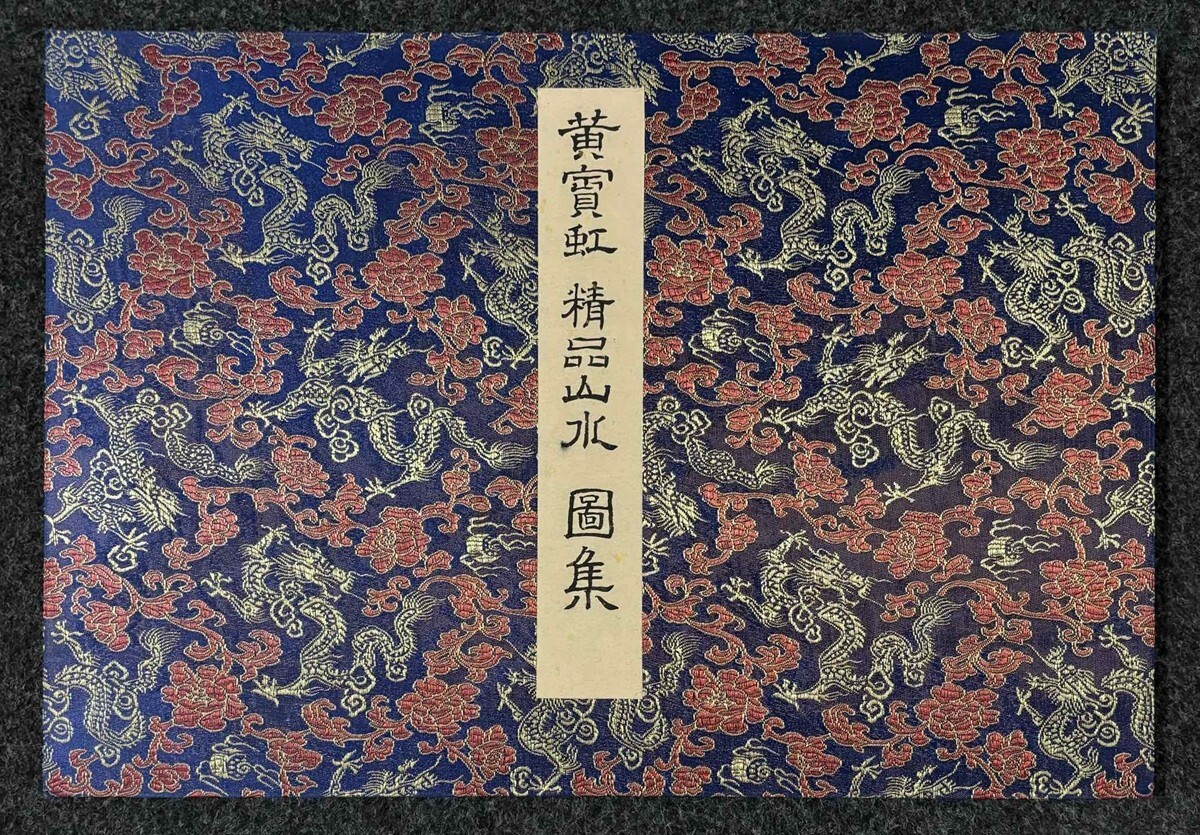 黃賓虹 精品山水 圖集